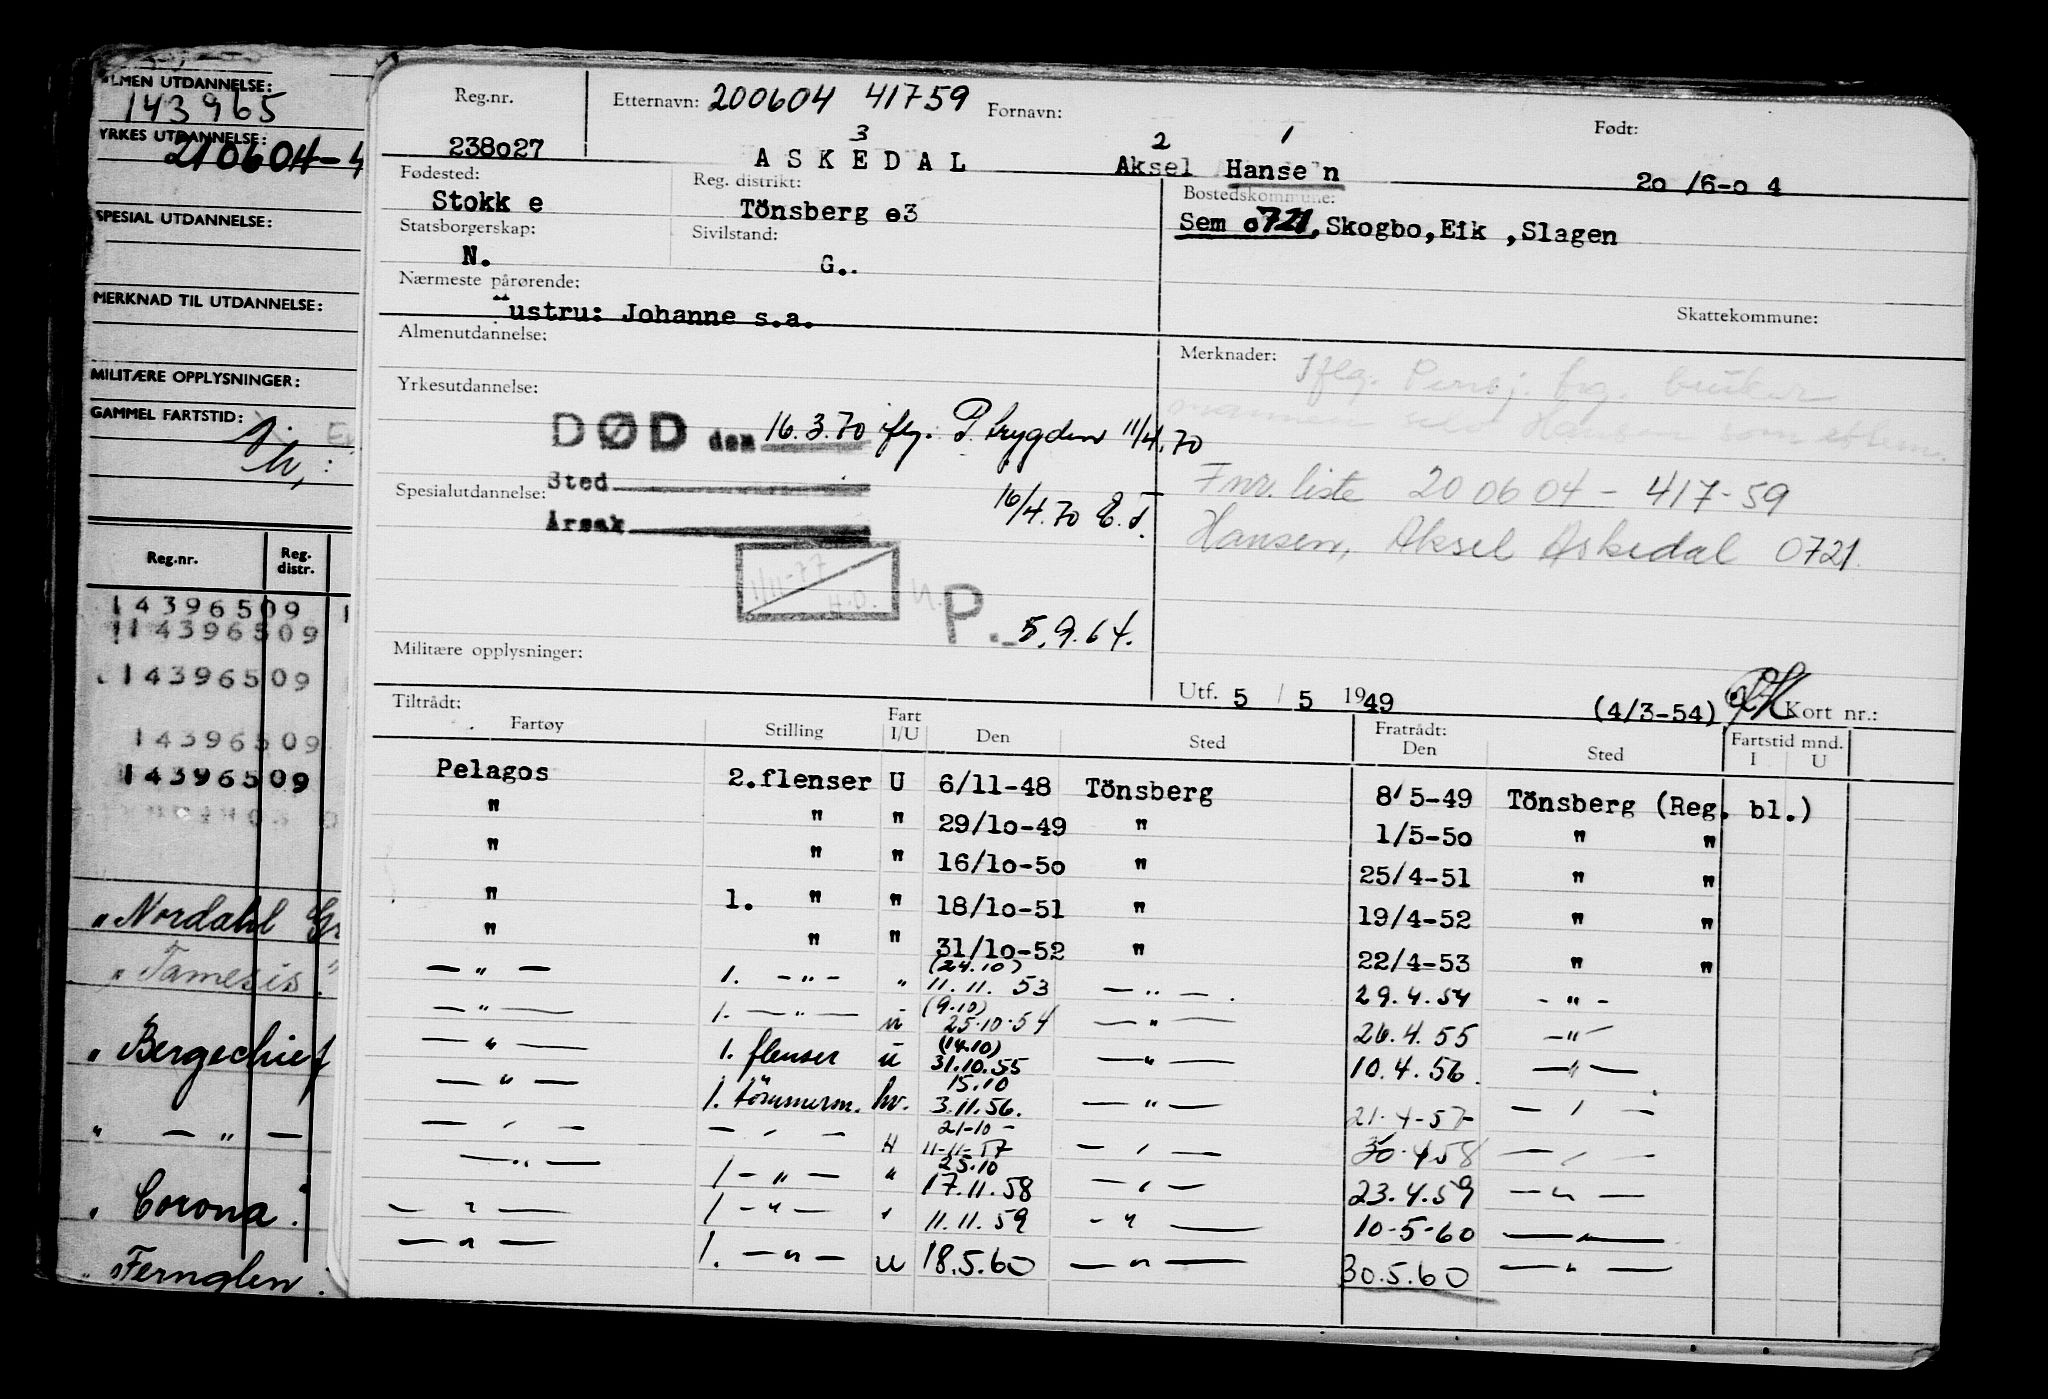 ALMEN UTDANNELSE:
143965
YRKES UTDANNELSE:
210604-4
SPESIAL UTDANNELSE:
MERKNAD TIL UTDANNELSE:
MILITÆRE OPPLYSNINGER:
GAMMEL FARTSTID:
Reg.nr. Reg. distr.
14396509
14396509
14396509
14396509
14396509
" Nordahl Gr
" Tamesis "
" Bergechief
" — " —
" Corona "
" Fernglen
Reg.nr. Etternavn: 200604 41759 Fornavn: Født:
3 2 1
238o27 ASKEDAL Aksel Hansen 2o /6-o 4
Fødested: Reg. distrikt: Bostedskommune:
Stokk e Tönsberg o3 Sem o721, Skogbo, Eik , Slagen
Statsborgerskap: Sivilstand:
N. G..
Nærmeste pårørende:
Hustru: Johanne s.a. Skattekommune:
Almenutdannelse: Merknader: Iflg.
Yrkesutdannelse:
DØD den 16.3.70 iflg. P. trygden 11/4.70
Fnr. liste 200604 - 417-59
Spesialutdannelse: Sted 16/4.70 E.T.
Årsak Hansen, Aksel Askedal 0721
1/11-77 H.O.
P. 5.9.64.
Militære opplysninger:
Utf. 5 / 5 1949 (4/3-54) Kort nr.:
Tiltrådt: Fratrådt: Fartstid mnd.
Fartøy Stilling Fart I/U Den Sted Den Sted I U
Pelagos 2.flenser U 6/11-48 Tönsberg 8/5-49 Tönsberg (Reg. bl.)
" " " 29/lo-49 " 1/5-5o " "
" " " 16/lo-5o " 25/4-51 " "
" 1. " " 18/lo-51 " 19/4-52 " "
" " " 31/lo-52 " 22/4-53 " "
— " — 1. — " — " (24.10) 11.11.53 — " — 29.4.54 — " —
— " — 1. — " — u (9.10) 25.10.54 — " — 26.4.55 — " —
— " — 1. flenser u (14.10) 31.10.55 — " — 10.4.56. — " —
— " — 1. tömmerm. hv. 15.10 3.11.56. — " — 21.4-57 — " —
— " — — " — H 21-10- 11-11-57 — " — 30.4.58 — " —
— " — 1 — " — " 25.10 17.11.58 — " — 23.4.59 — " —
— " — 1 — " — " 11.11.59 — " — 10-5-60 — " —
— " — 1. — " — u 18.5.60 — " — 30.5.60 — " —